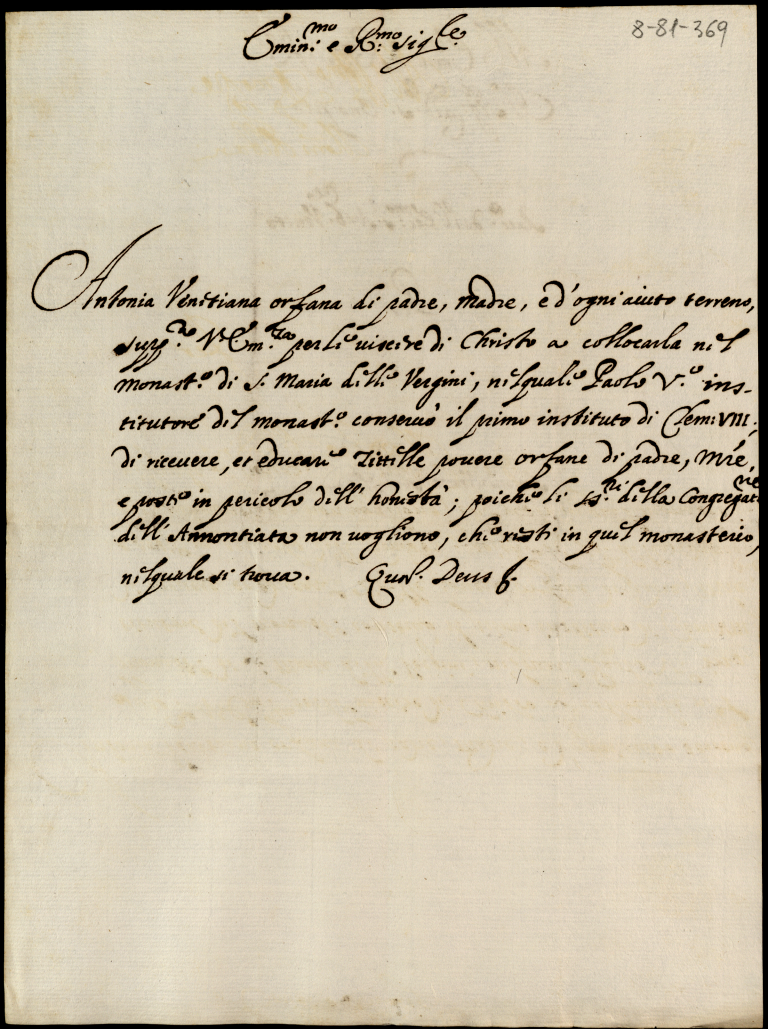 8-81-369
Emin.mo e R.mo sig.re
Antonia Venetiana orfana di padre, madre, e d'ogni aiuto terreno,
supp.ca V. Em.za per le viscere di Christo a collocarla nel
monast.o di S. Maria delle Vergini, nel quale Paolo V.o ins-
titutore del monast.o conservò il primo instituto di Clem: VIII,
di ricevere, et educare Zittelle povere orfane di padre, mre,
e poste in pericolo dell' honestà; poiche li ss.ri della Congregat.ne
dell' Annontiata non vogliono, che resti in quel monasterio,
nel quale si trova. Quā. Deus &.